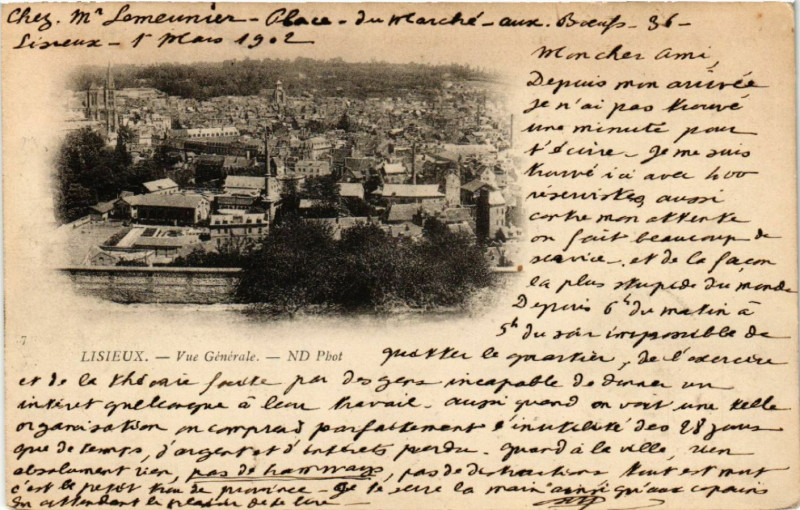 Chez Mr Lemeunier - Place - du Marché - aux - Boeufs - 36 -
Lisieux - 1r Mars 1902
Mon cher ami,
Depuis mon arrivée
je n'ai pas trouvé
une minute pour
t'écrire - Je me suis
trouvé ici avec 400
réservistes, aussi
contre mon attente
on fait beaucoup de
service - et de la façon
la plus stupide du monde
Depuis 6h du matin à
5h du soir impossible de
quitter le quartier, de l'exercice
et de la théorie faite par des gens incapable de donner un
intéret quelconque à leur travail - aussi quand on voit une telle
organisation on comprend parfaitement l'inutilité des 28 jours
que de temps, d'argent et d'intérêts perdu - Quand à la ville, rien
absolument rien, pas de tramways, pas de distractions tout est mort
c'est le petit trou de province - Je te serre la main ainsi qu'aux copains
En attendant le plaisir de te lire -
7
LISIEUX. — Vue Générale. — ND Phot